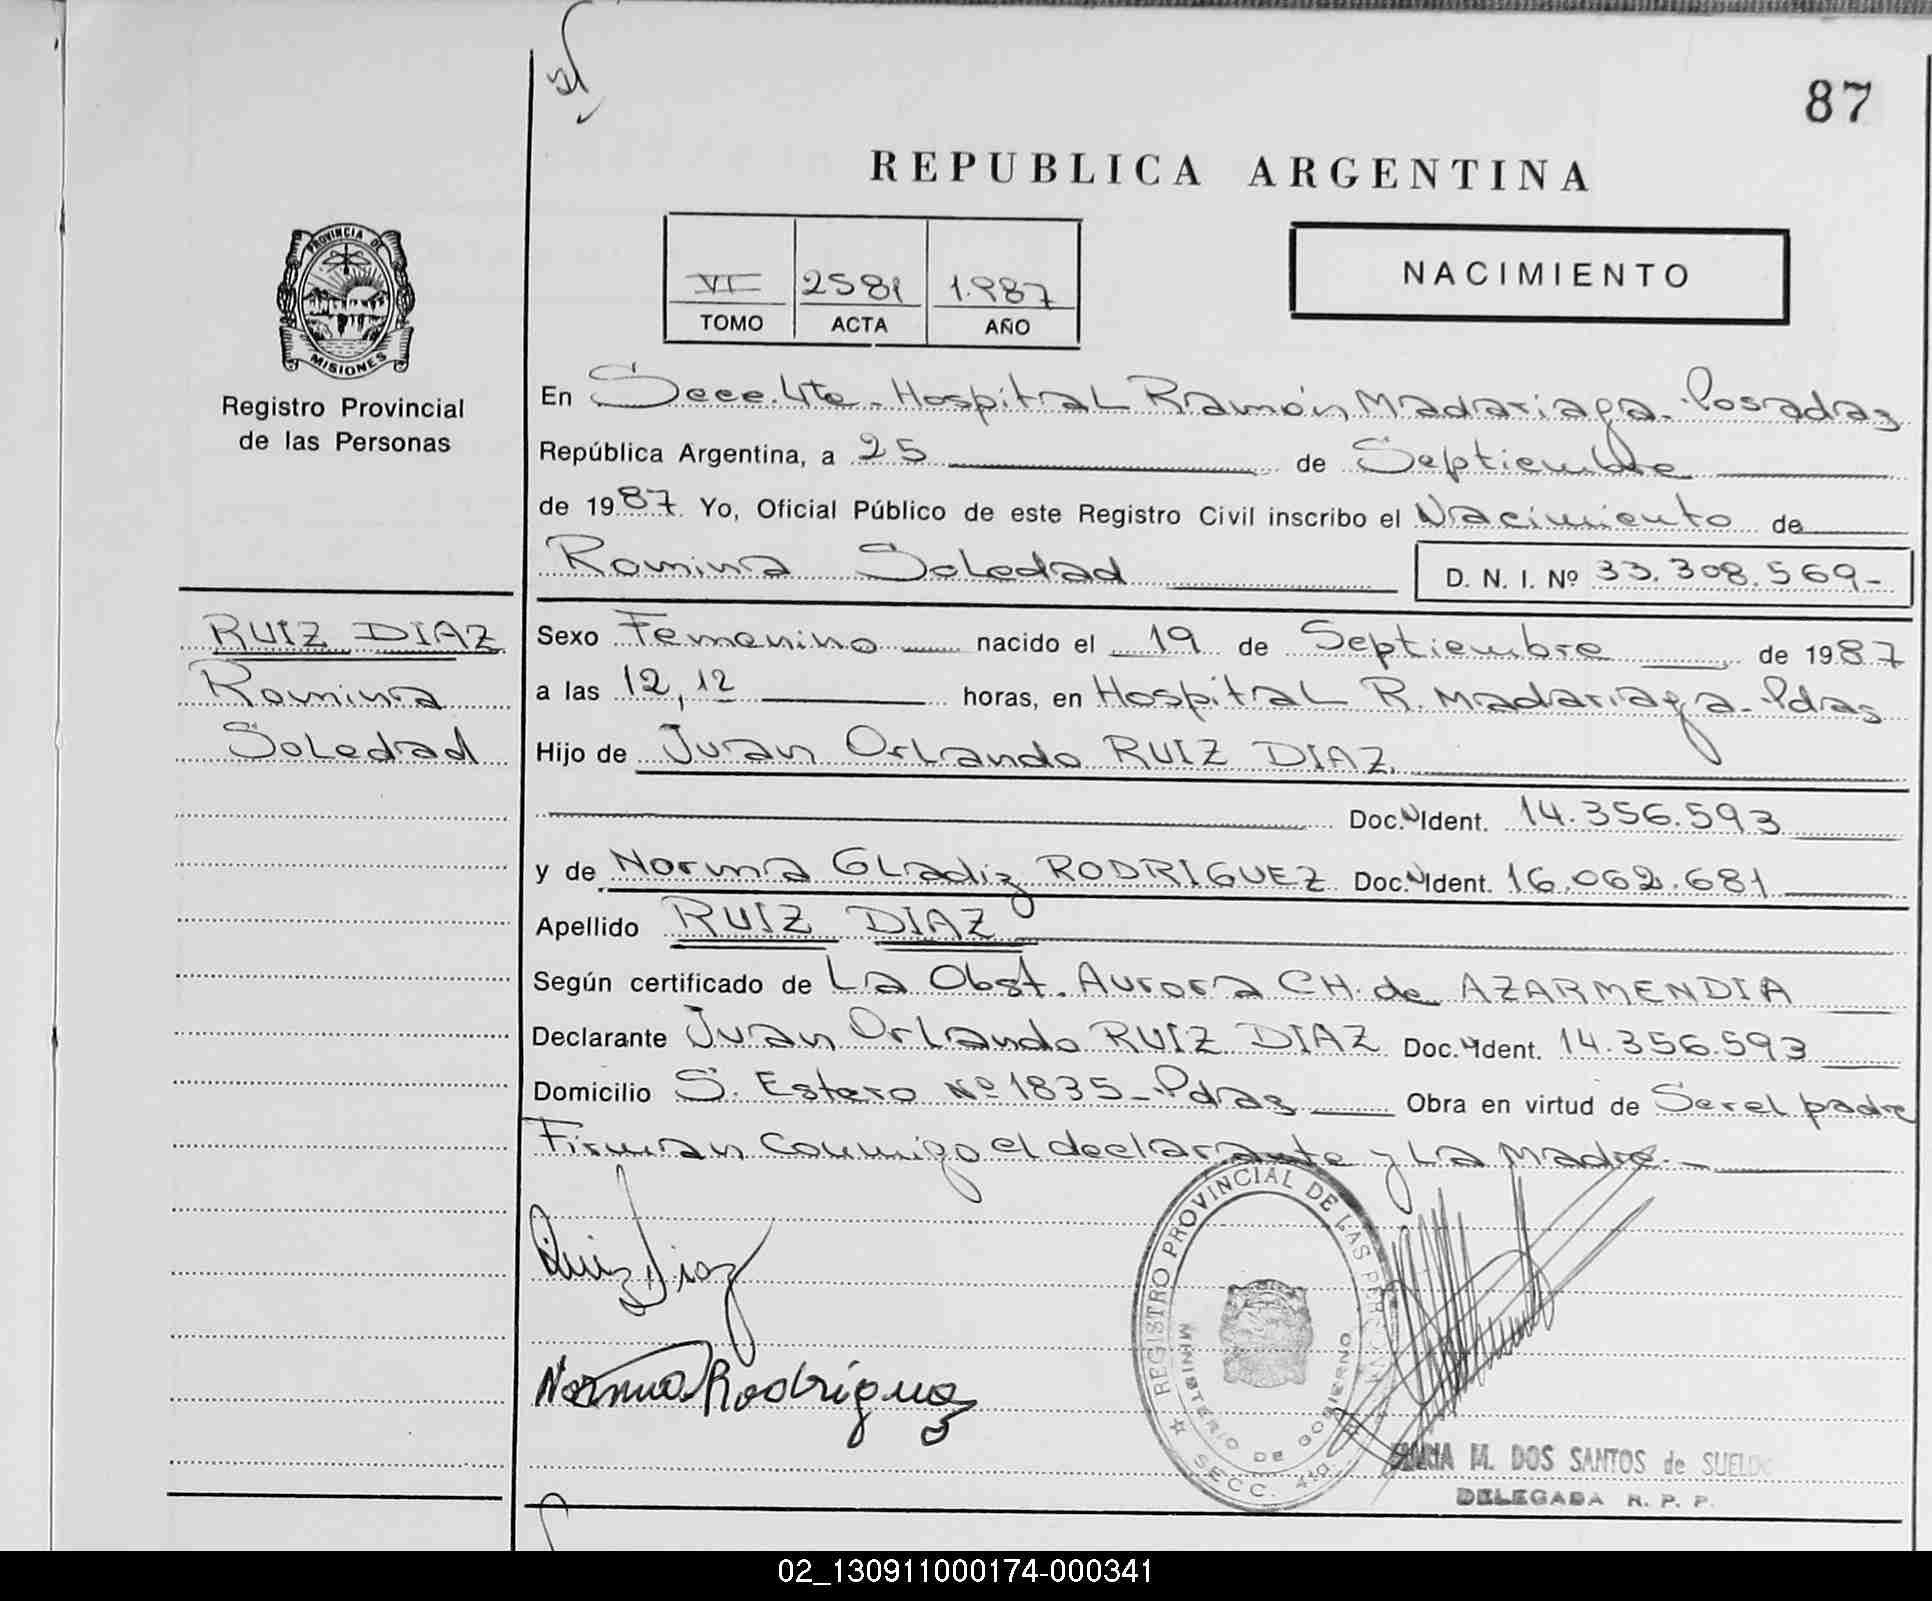 87
REPUBLICA ARGENTINA
VI 2581 1.987
TOMO ACTA AÑO
NACIMIENTO
PROVINCIA DE
MISIONES
Registro Provincial
de las Personas
En Secc. 4ta - Hospital Ramón Madariaga - Posadas
República Argentina, a 25 de Septiembre
de 1987 Yo, Oficial Público de este Registro Civil inscribo el Nacimiento de
Romina Soledad D. N. I. Nº 33.308.569-
RUIZ DIAZ
Romina
Soledad
Sexo Femenino nacido el 19 de Septiembre de 1987
a las 12,12 horas, en Hospital R. Madariaga - Pdas
Hijo de Juan Orlando RUIZ DIAZ.
Doc. N Ident. 14.356.593
y de Norma Gladiz RODRIGUEZ Doc. N Ident. 16.062.681
Apellido RUIZ DIAZ
Según certificado de La Obst. Aurora CH. de AZARMENDIA
Declarante Juan Orlando RUIZ DIAZ Doc. Ident. 14.356.593
Domicilio S. Estero Nº 1835 - Pdas Obra en virtud de Ser el padre
Firman conmigo el declarante y La Madre.-
Ruiz Diaz
Norma Rodriguez
REGISTRO PROVINCIAL DE LAS PERSONAS
MINISTERIO DE GOBIERNO
SECC. 4ta.
MARIA M. DOS SANTOS de SUELDO
DELEGADA R. P. P.
02_130911000174-000341